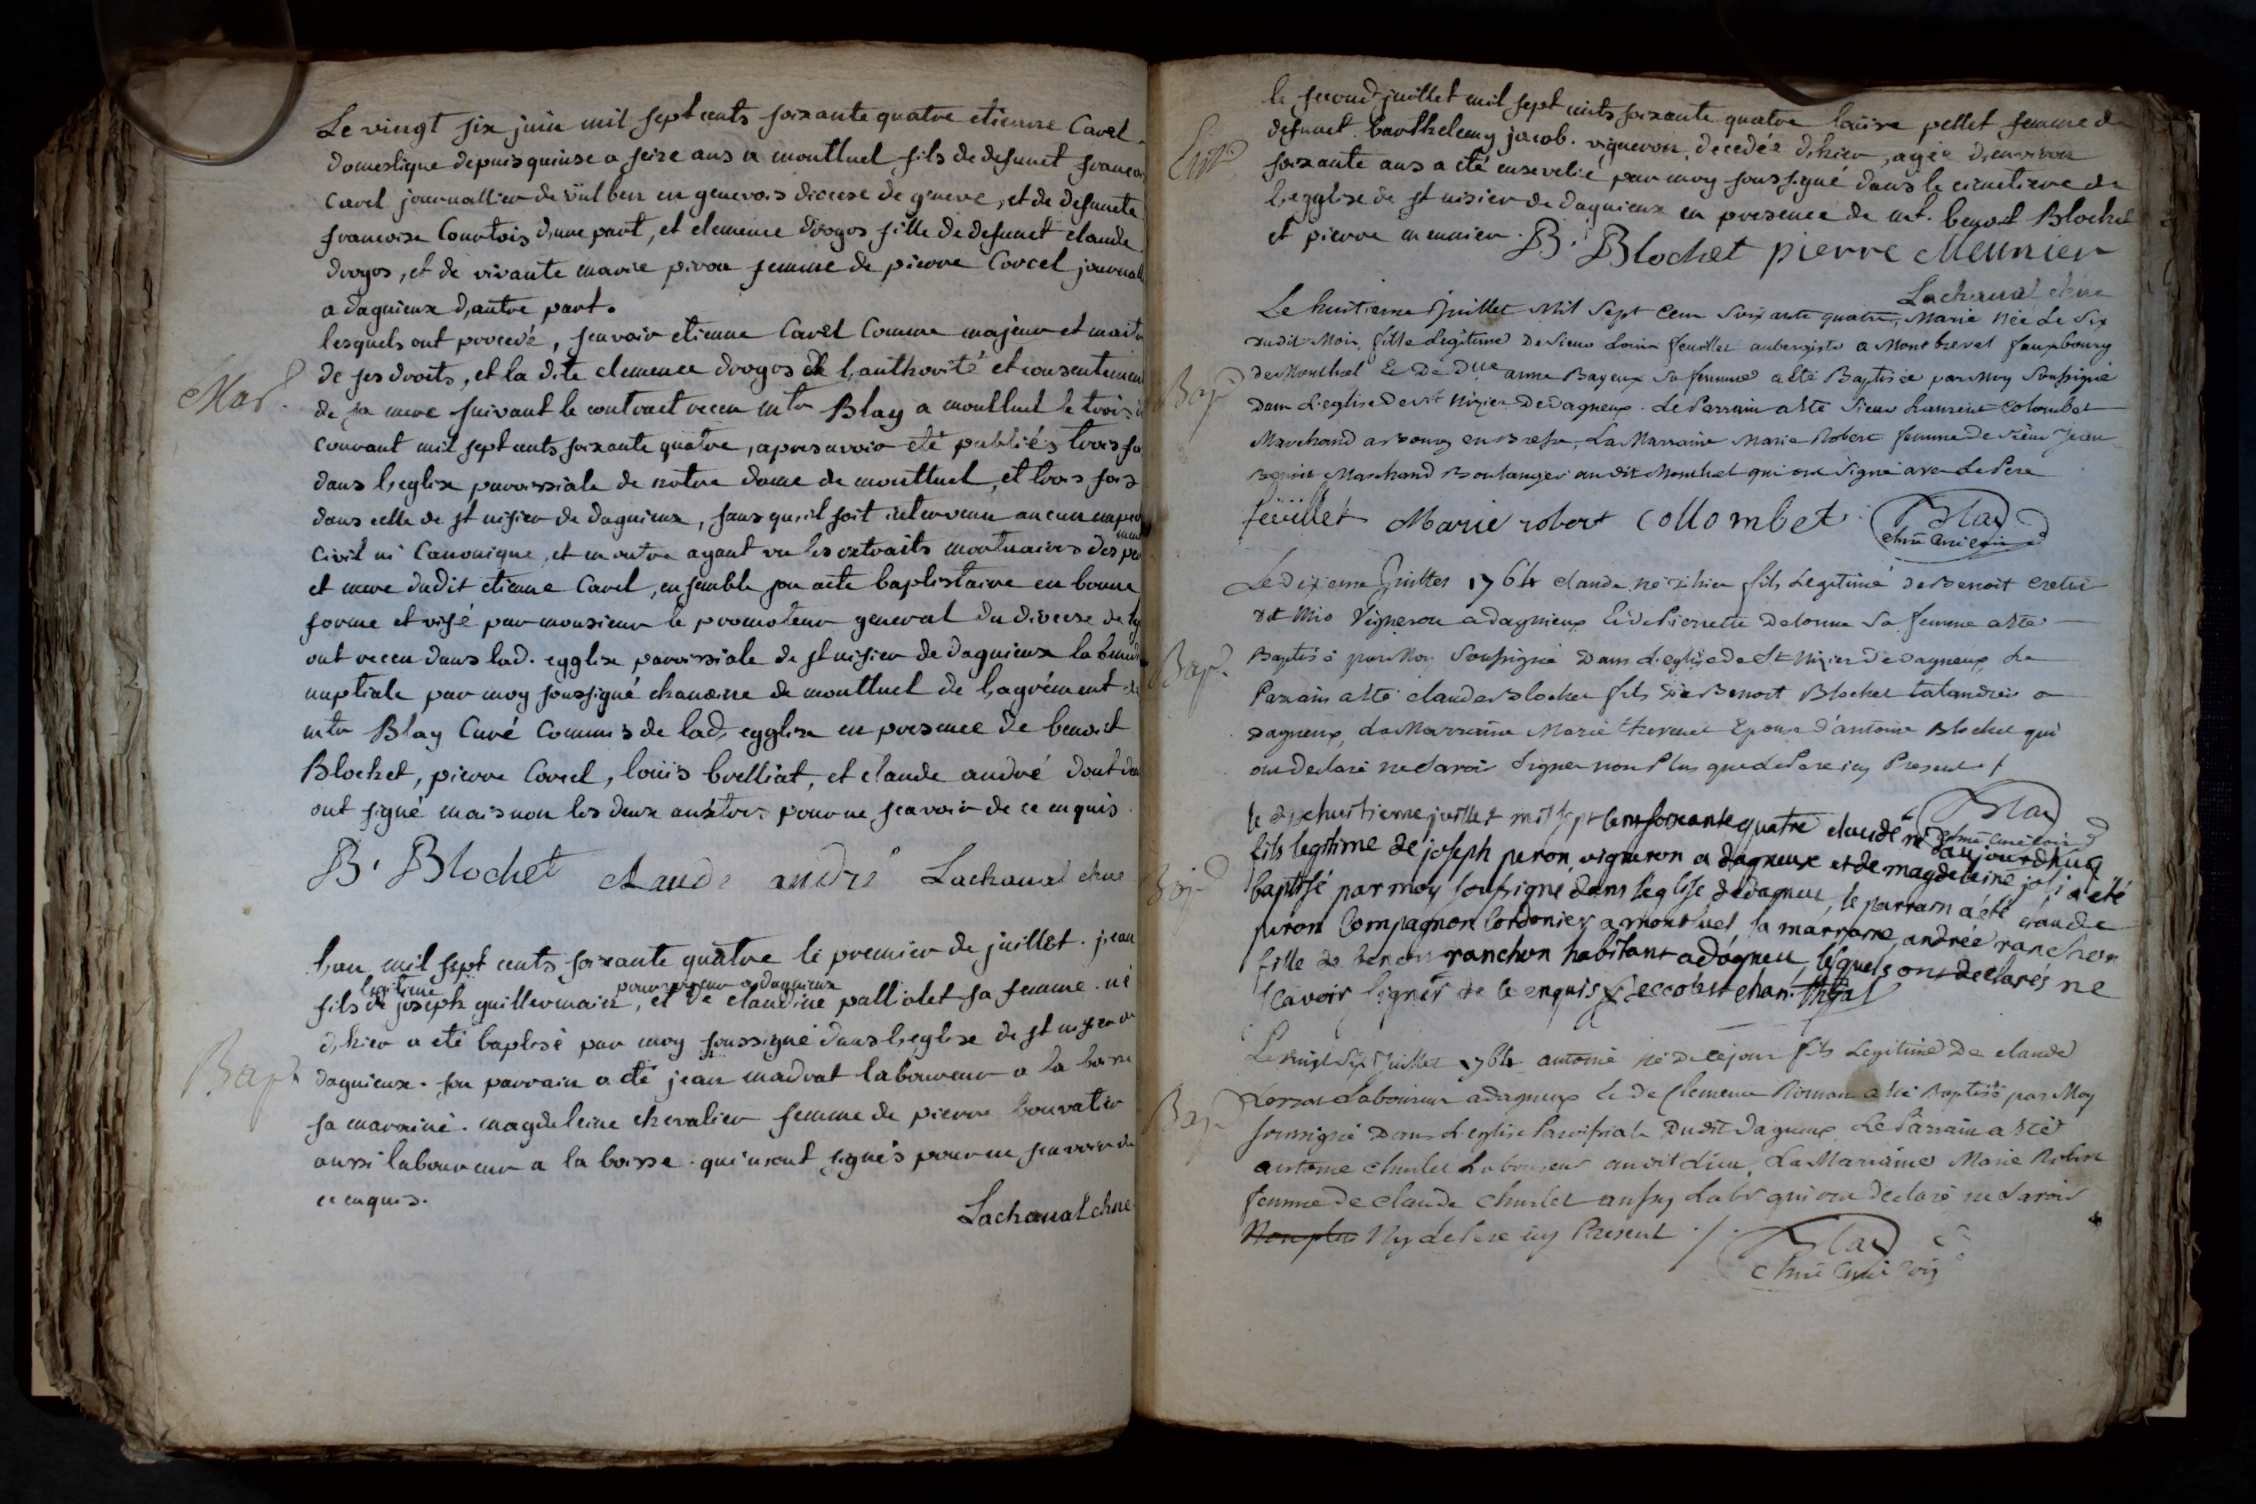 Le vingt six juin mil sept cents soixante quatre etienne Cavel
domestique depuis quinse a seize ans a montluel fils de defunct francois
Cavel journallier de vülben en genevois diocese de geneve, et de defuncte
francoise Courtois d,une part, et clemence drogos fille de defunct claude
drogos, et de vivante marie piron femme de pierre Corcel journall
a dagnieux d,autre part.
lesquels ont procedé, scavoir etienne Cavel Comme majeur et maitre
de ses droits, et la dite clemence drogos de l,authorité et consentement
Mar.
de sa mere suivant le contract receu mtr Blay a montluel le trois
courant mil sept cents soixante quatre, apres avoir eté publiés trois fois
dans l,eglise paroissiale de notre dame de montluel, et trois fois
dans celle de st nisier de dagnieux, sans qu,il soit intervenu aucun empe
civil ni Canonique, et en outre ayant vu les extraits mortuaires des pere
et mere dudit etienne Cavel, ensemble son acte baptistaire en bonne
forme et visé par monsieur le promoteur general du diocese de
ont receu dans lad. egglise paroissiale de st nisier de dagnieux la bened
nuptiale par moy soussigné chanoine de montluel de l,agrément de
mtr Blay Curé Commis de lad. egglise en presence de benoit
Blochet, pierre Corcel, loüis brelliat, et claude andré dont deux
ont signé mais non les deux autres pour ne scavoir de ce enquis.
B. Blochet claude andre Lachanal chne
l,an mil sept cents soixante quatre le premier de juillet. jean
legitime a dagnieux
fils de joseph guillermain, et de claudine palliolet sa femme. né
d,hier a eté baptisé par moy soussigné dans l,eglise de st nisier de
Bap.
dagnieux. son parrain a eté jean madrat laboureur a la boisse
sa maraine. magdeleine chevalier femme de pierre bouvatier
aussi laboureur a la boisse. qui n,ont signés pour ne scavoir de
ce enquis.
Lachanal chne
le second juillet mil sept cents soixante quatre loüise pellet femme de
defunct barthelemy jacob. vigneron, decedée d,hier, agée d,environ
soixante ans a eté ensevelie par moy soussigné dans le cimetiere de
l,egglise de st nisier de dagnieux en presence de mt. benoit Blochet
et pierre meunier. B. Blochet pierre Meunier
Lachanal chne
Le huitieme Juillet Mil Sept Cent Soixante quatre, Marie Née Le Six
dudit Mois fille Legitime De Sieur Louis feuillet aubergiste a Montbrevel fauxbourg
Bap.
de Montluel Et De Dlle anne Bayeux Sa femme a été Baptisée par Moy Soussigné
Dans L'eglise De St Nizier De Dagneux. Le Parrain a été Sieur Laurent Colombet
Marchand a Bourg en Bresse, La Marraine Marie Robert femme de Sieur Jean
Benoit Marchand Boulanger audit Montluel qui ont Signé avec Le Pere
feuillet Marie robert collombet Blay
chne Curé
Le dixieme Juillet 1764 claude né d'hier fils Legitime de Benoit
dit Mio Vigneron a dagnieux Et de Pierrette Delorme Sa femme a été
Bap.
Baptisé par Moy Soussigné Dans L'eglise de St Nizier de Dagneux, Le
Parrain a été claude Blochet fils de Benoit Blochet a
Dagneux, La Marraine Marie thevenet Epouse d'antoine Blochet qui
ont Declaré ne Savoir Signer non Plus que Le Pere icy Present
Blay
chne curé
le dixhuitieme juillet mil sept cent soixante quatre claude né d'aujourdhuy
fils legitime de joseph peron vigneron a dagneux et de magdeleine joli a été
Bap.
baptisé par moy soussigné dans l'église de dagneux, le parrain a été claude
peron Compagnon Cordonier a montluel la marraine, andrée ranchon
fille de benoit ranchon habitant a dagneu, lesquels ont declarés ne
scavoir signer de ce enquis
Le vingt Six Juillet 1764 antoine né De ce jour fils Legitime De claude
Laboureur a dagneux Et de Clemence Roman a été Baptisé par Moy
Bap.
soussigné Dans L'eglise Paroissiale Dudit dagneux Le Parrain a été
antoine churlet Laboureur audit Lieu, La Marraine Marie Robert
femme de claude churlet aussy Labr qui ont Declaré ne Savoir
Non plus Ny le Pere icy Present
Blay
chne Curé